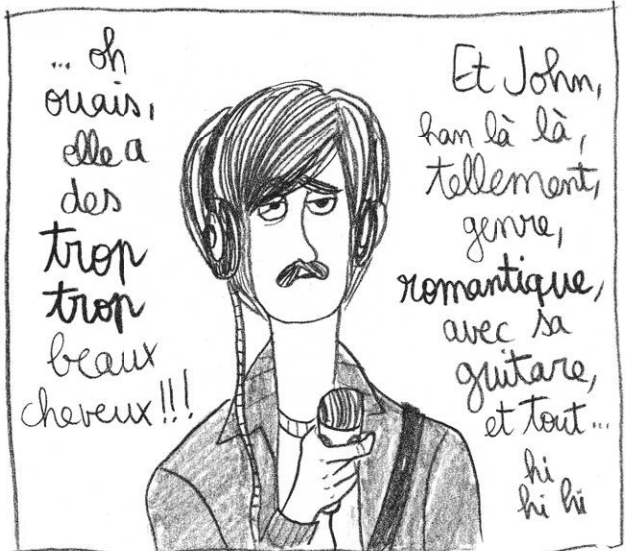 ... oh
ouais,
elle a
des
trop
trop
beaux
cheveux!!!
Et John,
han là là,
tellement,
genre,
romantique,
avec sa
guitare,
et tout...
hi
hi hi